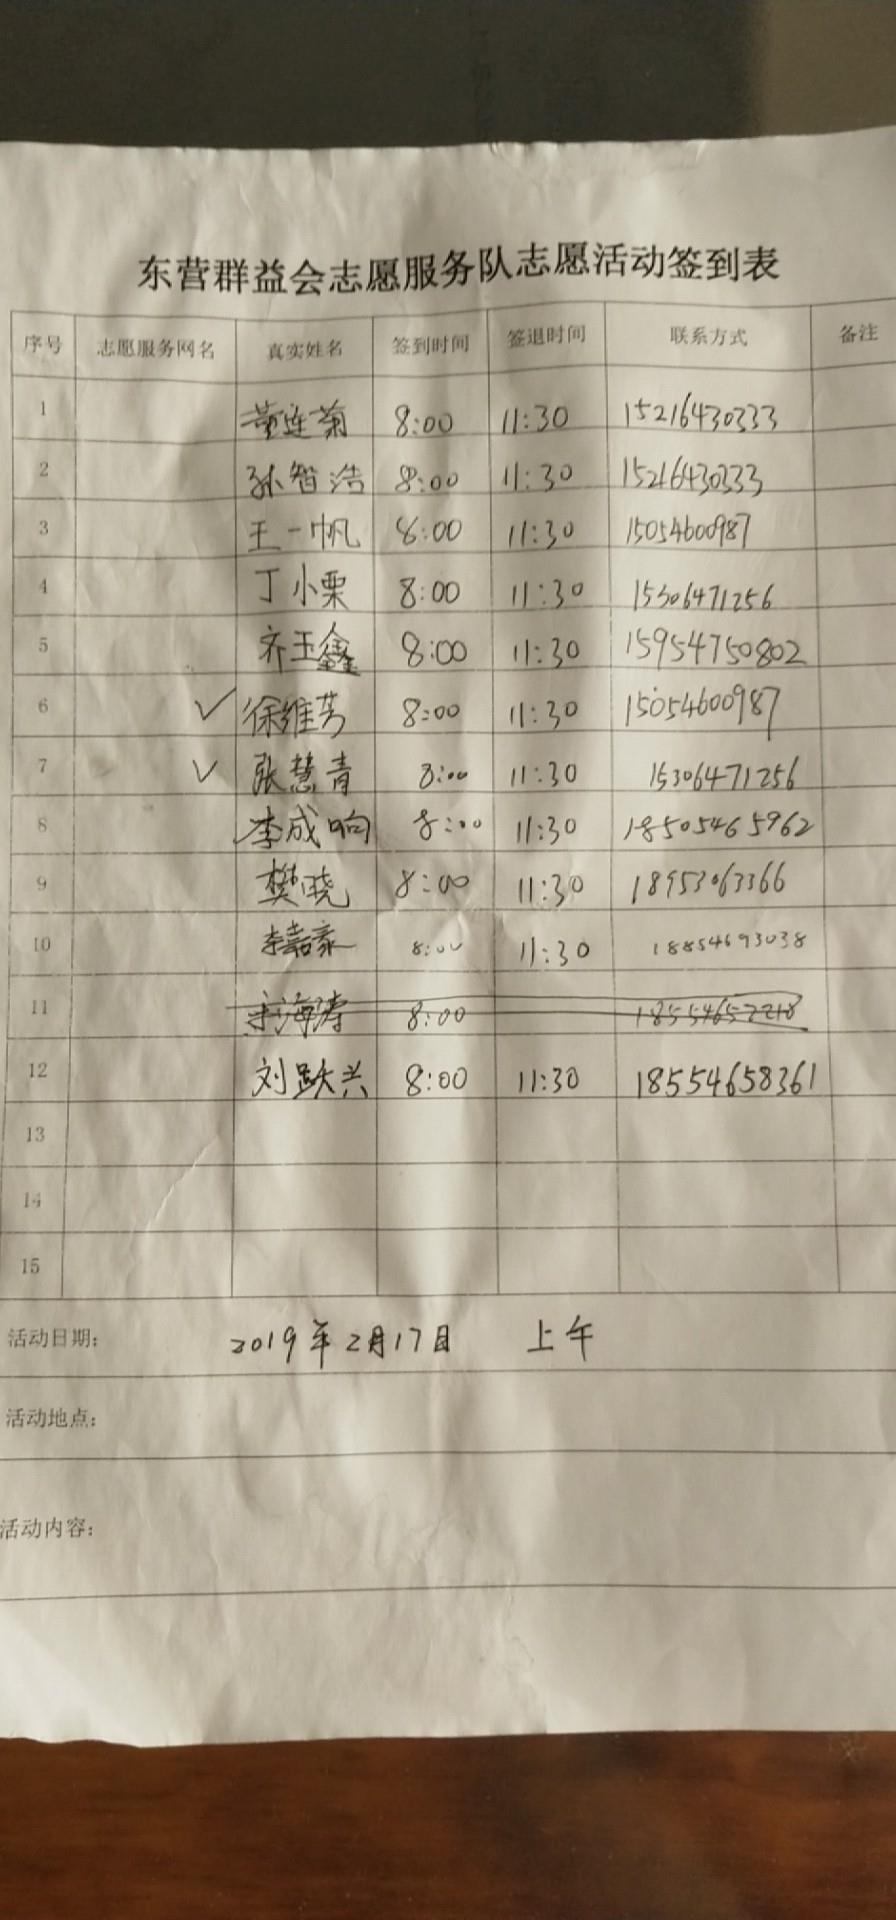 东营群益会志愿服务队志愿活动签到表
序号 志愿服务网名 真实姓名 签到时间 签退时间 联系方式 备注
1 董连菊 8:00 11:30 15216430333
2 孙智浩 8:00 11:30 15216430333
3 王一帆 8:00 11:30 15054600987
4 丁小栗 8:00 11:30 15306471256
5 齐玉鑫 8:00 11:30 15954750802
6 ✓ 徐维芳 8:00 11:30 15054600987
7 ✓ 张慧青 8:00 11:30 15306471256
8 李成响 8:00 11:30 18505465962
9 樊晓 8:00 11:30 18953063366
10 李嘉豪 8:00 11:30 18854693038
11 8:00
12 刘跃兴 8:00 11:30 18554658361
13
14
15
活动日期: 2019年2月17日 上午
活动地点:
活动内容: